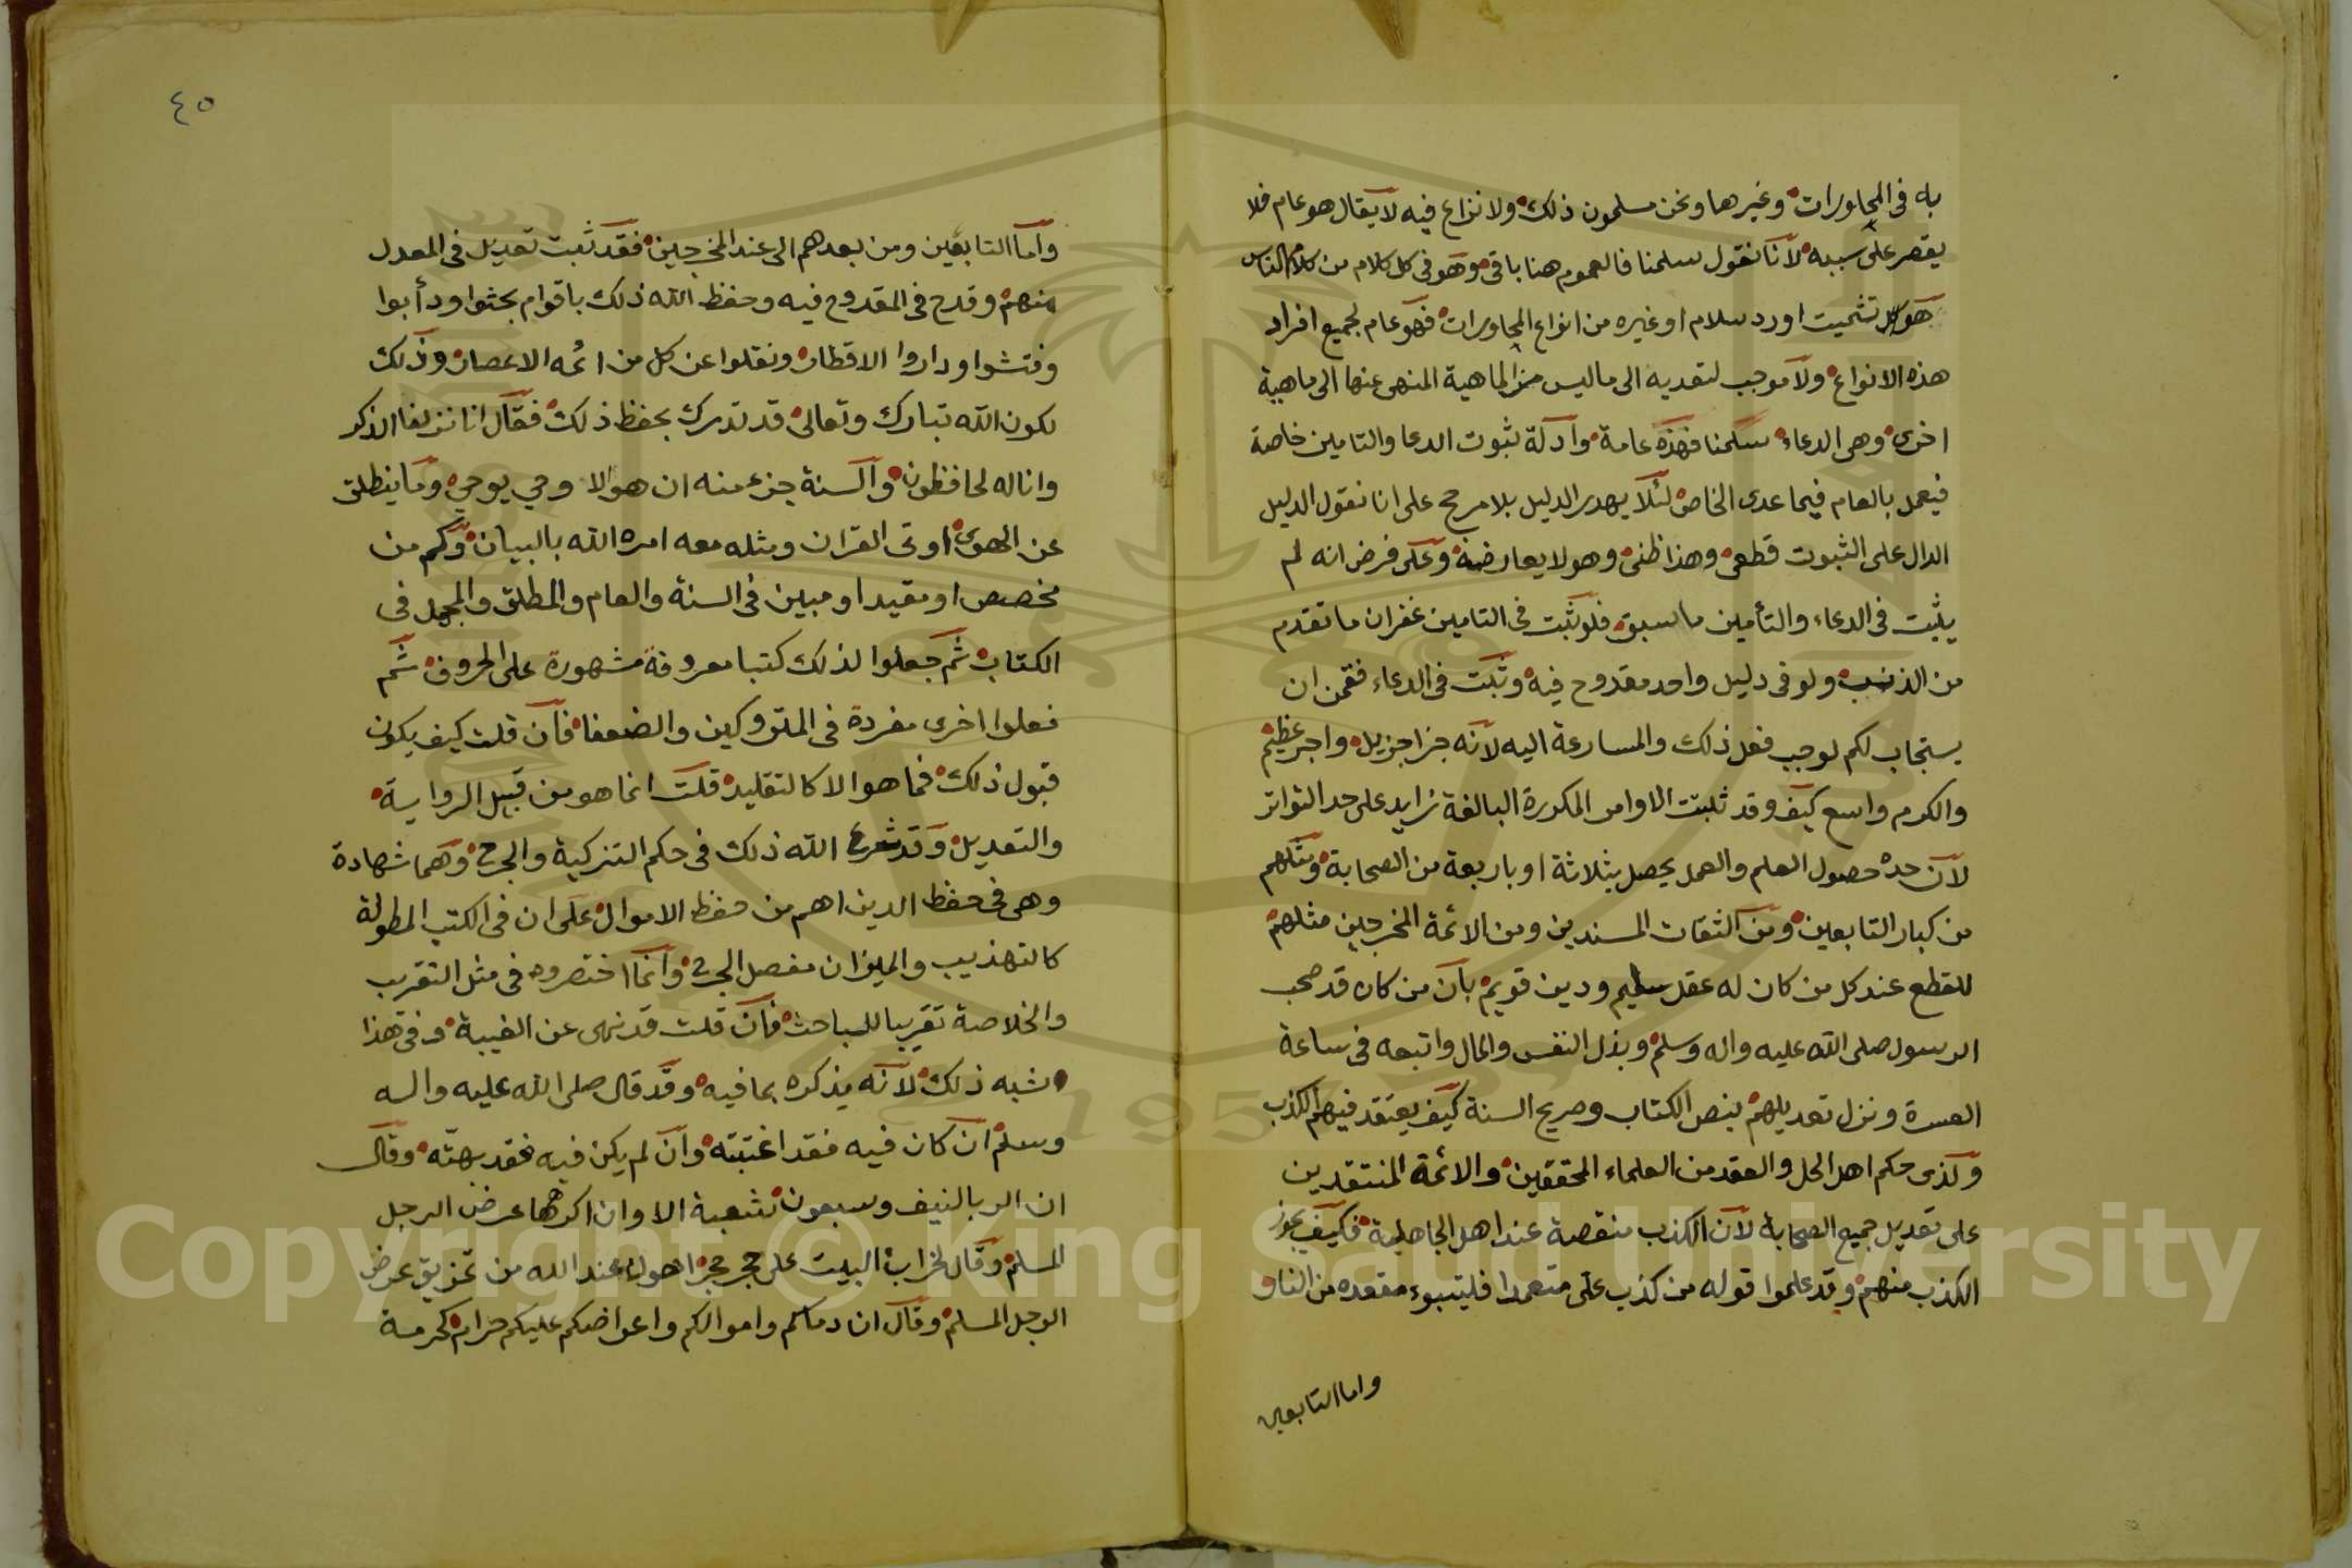 به فى المحاورات وغيرها ونحن مسلمون ذلك ولا نزاع فيه لا يقال هو عام فلا
يقصر على سببه لانا نقول سلمنا فالعموم هنا باقى وهو فى كل كلام من كلام الناس
هو كل تشميت او رد سلام او غيره من انواع المحاورات فهو عام لجميع افراد
هذه الانواع ولا موجب لتعديه الى ما ليس من الماهية المنهى عنها الى ماهية
اخرى وهى الدعاء سلمنا فهذه عامة وادلة ثبوت الدعا والتامين خاصة
فيعمل بالعام فيما عدى الخاص لئلا يهدر الدليل بلا مرجح على انا نقول الدليل
الدال على الثبوت قطعى وهذا ظنى وهو لا يعارضه وعلى فرض انه لم
يثبت فى الدعاء والتأمين ما سبق فلو ثبت فى التامين غفران ما تقدم
من الذنب ولو فى دليل واحد مقدوح فيه وثبت فى الدعاء فقمن ان
يستجاب لكم لوجب فعل ذلك والمسارعة اليه لانه جزا جزيل واجر عظيم
والكرم واسع كيف وقد ثلبتت الاوامر المكررة البالغة زايد على حد التواتر
لان حده حصول العلم والعمل يحصل بثلاثة او باربعة من الصحابة ومثلهم
من كبار التابعين ومن الثقات المسندين ومن الائمة المخرجين مثلهم
للقطع عند كل من كان له عقل سليم ودين قويم بان من كان قد صحب
الرسول صلى الله عليه واله وسلم وبذل النفس والمال واتبعه فى ساعة
العسرة ونزل تعديلهم بنص الكتاب وصريح السنة كيف يعتقد فيهم الكذب
ولذى حكم اهل الحل والعقد من العلماء المحققين والائمة المنتقدين
على تعديل جميع الصحابة لان الكذب منقصة عند اهل الجاهلية فكيف يجوز
الكذب منهم وقد علموا قوله من كذب على متعمدا فليتبوء مقعده من النار
واما التابعين
٤٥
واما التابعين ومن بعدهم الى عند المخرجين فقد ثبت تعديل فى المعدل
منهم وقدح فى المقدوح فيه وحفظ الله ذلك باقوام بحثوا ودأبوا
وفتشوا وداروا الاقطار ونقلوا عن كل من ائمه الاعصار وذلك
لكون الله تبارك وتعالى قد تدرك بحفظ ذلك فقال انا نزلنا الذكر
وانا له لحافظون والسنة جزء منه ان هو الا وحي يوحي وما ينطلق
عن الهوى اوتى القران ومثله معه امره الله بالبيان وكم من
مخصص او مقيد او مبين فى السنة والعام والمطلق والمجمل فى
الكتاب ثم جعلوا لذلك كتبا معروفة مشهورة على الحروف ثم
فعلوا اخرى مفردة فى المتروكين والضعفا فان قلت كيف يكون
قبول ذلك فما هو الا كالتقليد قلت انما هو من قبيل الرواية
والتعديل وقد شرع الله ذلك فى حكم التزكية والجرح وهما شهادة
وهى فى حفظ الدين اهم من حفظ الاموال على ان فى الكتب المطولة
كالتهذيب والميزان مفصل الجرح وانما اختصروه فى مثل التقريب
والخلاصة تقريبا للباحث فان قلت قد نهى عن الغيبة وفى هذا
شبه ذلك لانه يذكره بما فيه وقد قال صلى الله عليه واله
وسلم ان كان فيه فقد اغتبته وان لم يكن فيه فقد بهته وقال
ان الربا لنيف وسبعون شعبة الا وان اكرهها عرض الرجل
المسلم وقال لخراب البيت على حجر حجر اهون عند الله من تمزيق عرض
الرجل المسلم وقال ان دماكم واموالكم واعراضكم عليكم حرام كحرمة
Copyright © King Saud University